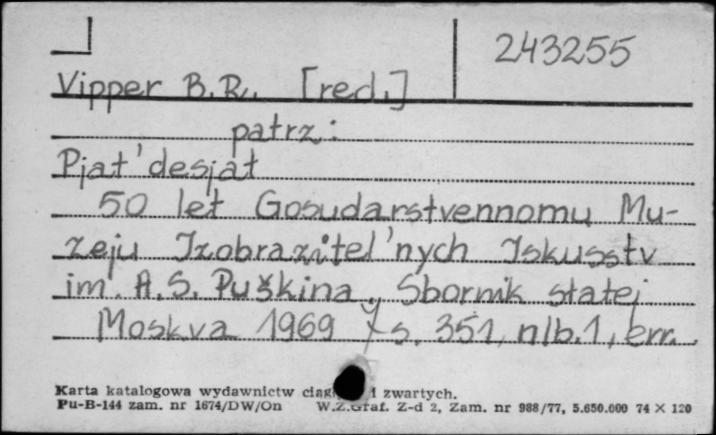 243255
Vipper B.R. [red.]
patrz:
Pjat'desjat
50 let Gosudarstvennomu Mu-
zeju Izobrazitel'nych Iskusstv
im. A.S. Puškina. Sbornik statej
Moskva 1969 s. 351, nlb. 1, err.
Karta katalogowa wydawnictw zwartych.
Pu-B-144 zam. nr 1674/DW/On W.Z.Graf. Z-d 2, Zam. nr 988/77, 5.650.000 74 × 120